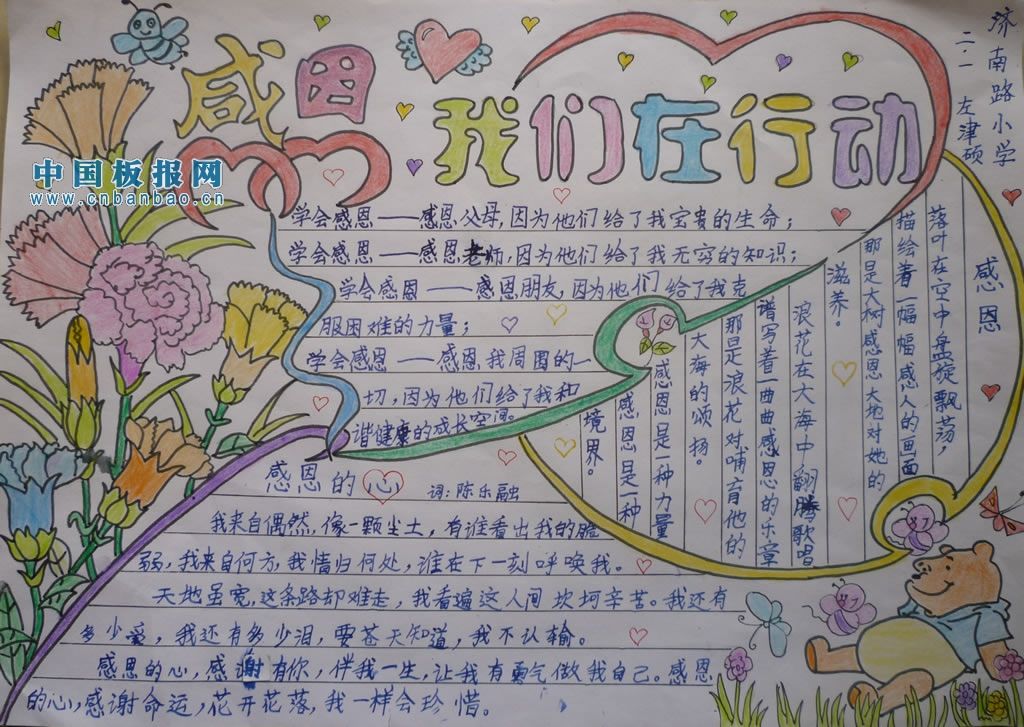 感恩
我们在行动
济南路小学
二.一 左津硕
中国板报网
www.cnbanbao.cn
学会感恩——感恩父母,因为他们给了我宝贵的生命;
学会感恩——感恩老师,因为他们给了我无穷的知识;
学会感恩——感恩朋友,因为他们给了我克
服困难的力量;
学会感恩——感恩我周围的一
切,因为他们给了我和
谐健康的成长空间。
感恩
落叶在空中盘旋飘荡,
描绘着一幅幅感人的画面
那是大树感恩大地对她的
滋养。
浪花在大海中翻腾歌唱
谱写着一曲曲感恩的乐章
那是浪花对哺育他的
大海的颂扬。
感恩是一种力量
感恩是一种
境界。
感恩的心 词:陈乐融
我来自偶然,像一颗尘土,有谁看出我的脆
弱,我来自何方,我情归何处,谁在下一刻呼唤我。
天地虽宽,这条路却难走,我看遍这人间坎坷辛苦。我还有
多少爱,我还有多少泪,要苍天知道,我不认输。
感恩的心,感谢有你,伴我一生,让我有勇气做我自己。感恩
的心,感谢命运,花开花落,我一样会珍惜。